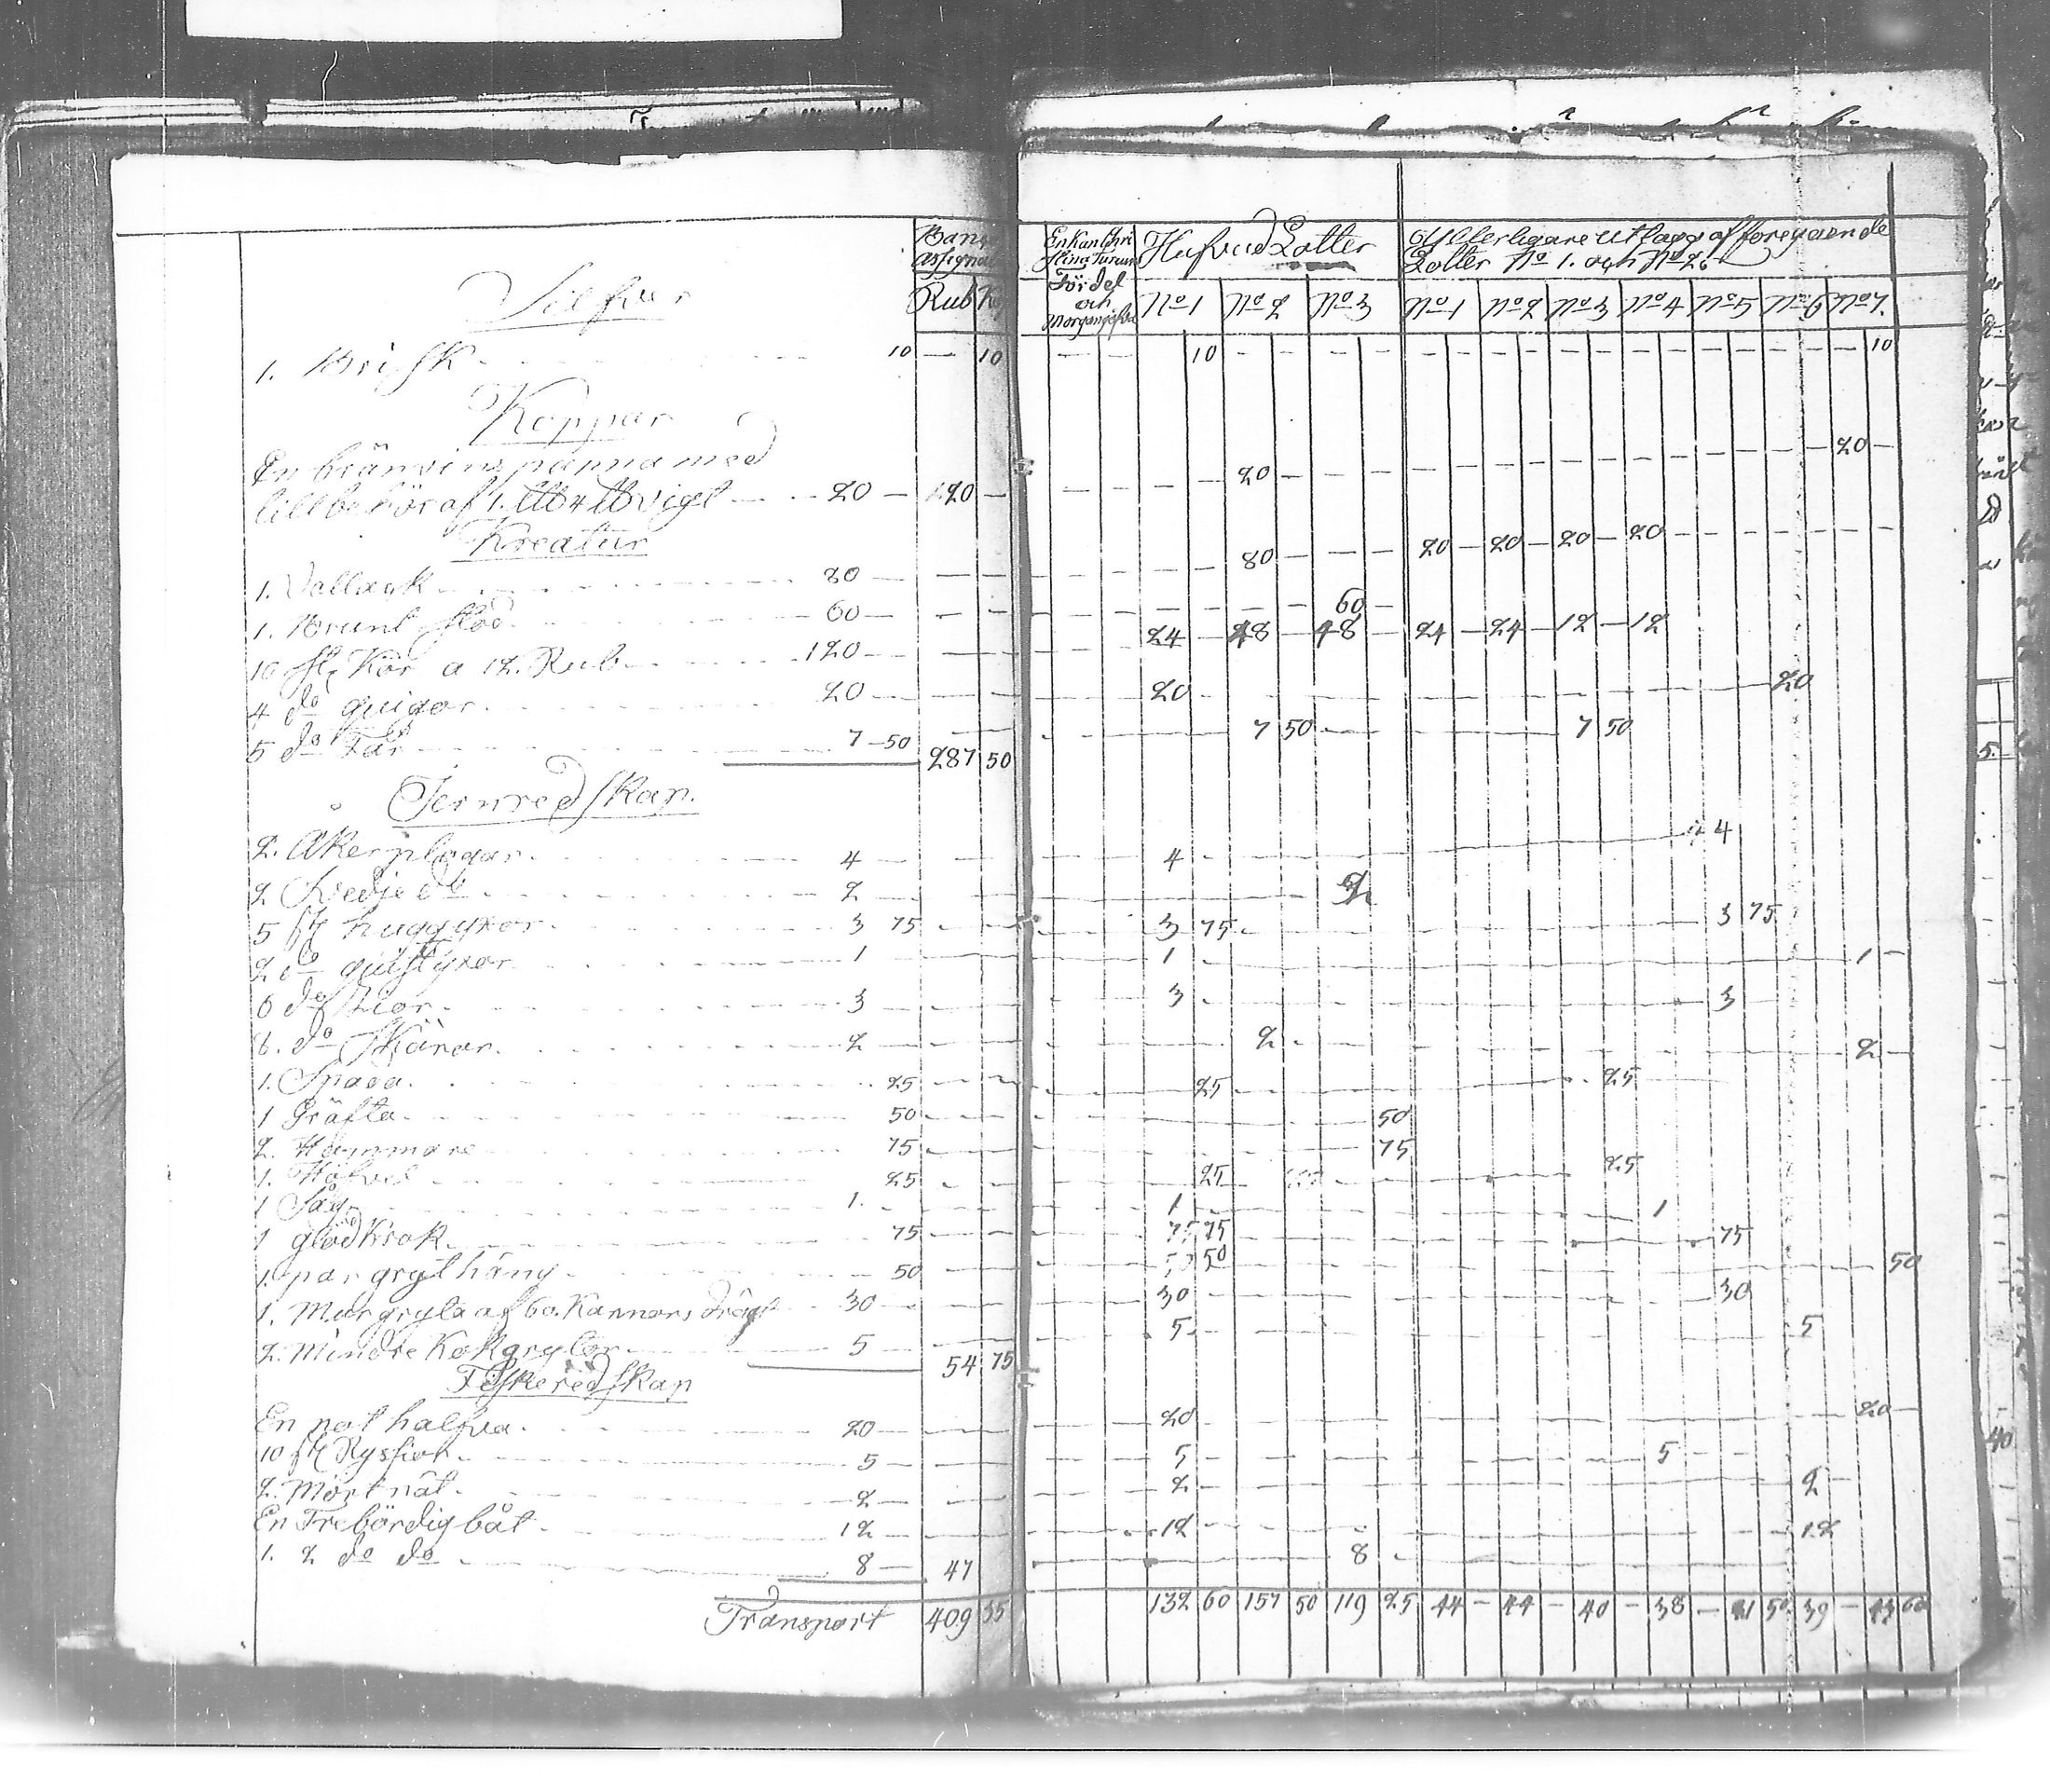 Silfver
Banco Assignat
Rub K
Enkan Chri
stina Turun
Fördel
och
Morgongåfva
Hufvud Lotter
No 1 No 2 No 3
Ytterligare uttagg af föregående
Lotter No 1. och No 2.
No 1 No 2 No 3 No 4 No 5 No 6 No 7.
1. Brisk 10 — 10 10 10
Koppar
En bränvins panna med
tillbehör af 1. LH 4 H vigt 20 — 20 — 20 — 20 —
Kreatur
1. Vallack 80 — 80 — 20 — 20 — 20 — 20
1. Brunt Stod 60 — 60 —
10 st. Kor a 12. Rub 120 — 24 — 48 — 48 — 24 — 24 — 12 — 12
4 do quigor 20 — 20 20
5 do Får 7 — 50 287 50 7 50 7 50
Jernredskap.
2. Åkerplogar 4 — 4 4
2 Svedje do 2 — 2
5 st huggyxor 3 75 3 75 3 75
2 do yxor 1 1 1 —
6 do Liar 3 — 3 3
8. do Skäror 2 — 2 2 —
1. Spada 25 25 25
1 Gräfta 50 50
2. Hammare 75 75
1. 25 25 25
1 Såg 1. 1 1
1 glödkrok 75 75 75 75
1. par grythäng 50 50 50
1. Murgryta af 60. Kannors drägt 30 — 30 30
2. Mindre Kokgrytor 5 — 54 75 5 5
Fiskeredskap
En not halfva 20 — 20 20 —
10 st Ryssior 5 — 5 5
2. Mört nät 2 — 2 2 —
En Trebördig båt 12 — 12 12
1. 2 do do 8 — 47 8
Transport 409 35 132 60 157 50 119 25 44 — 44 — 40 — 38 — 50 39 — 43 60